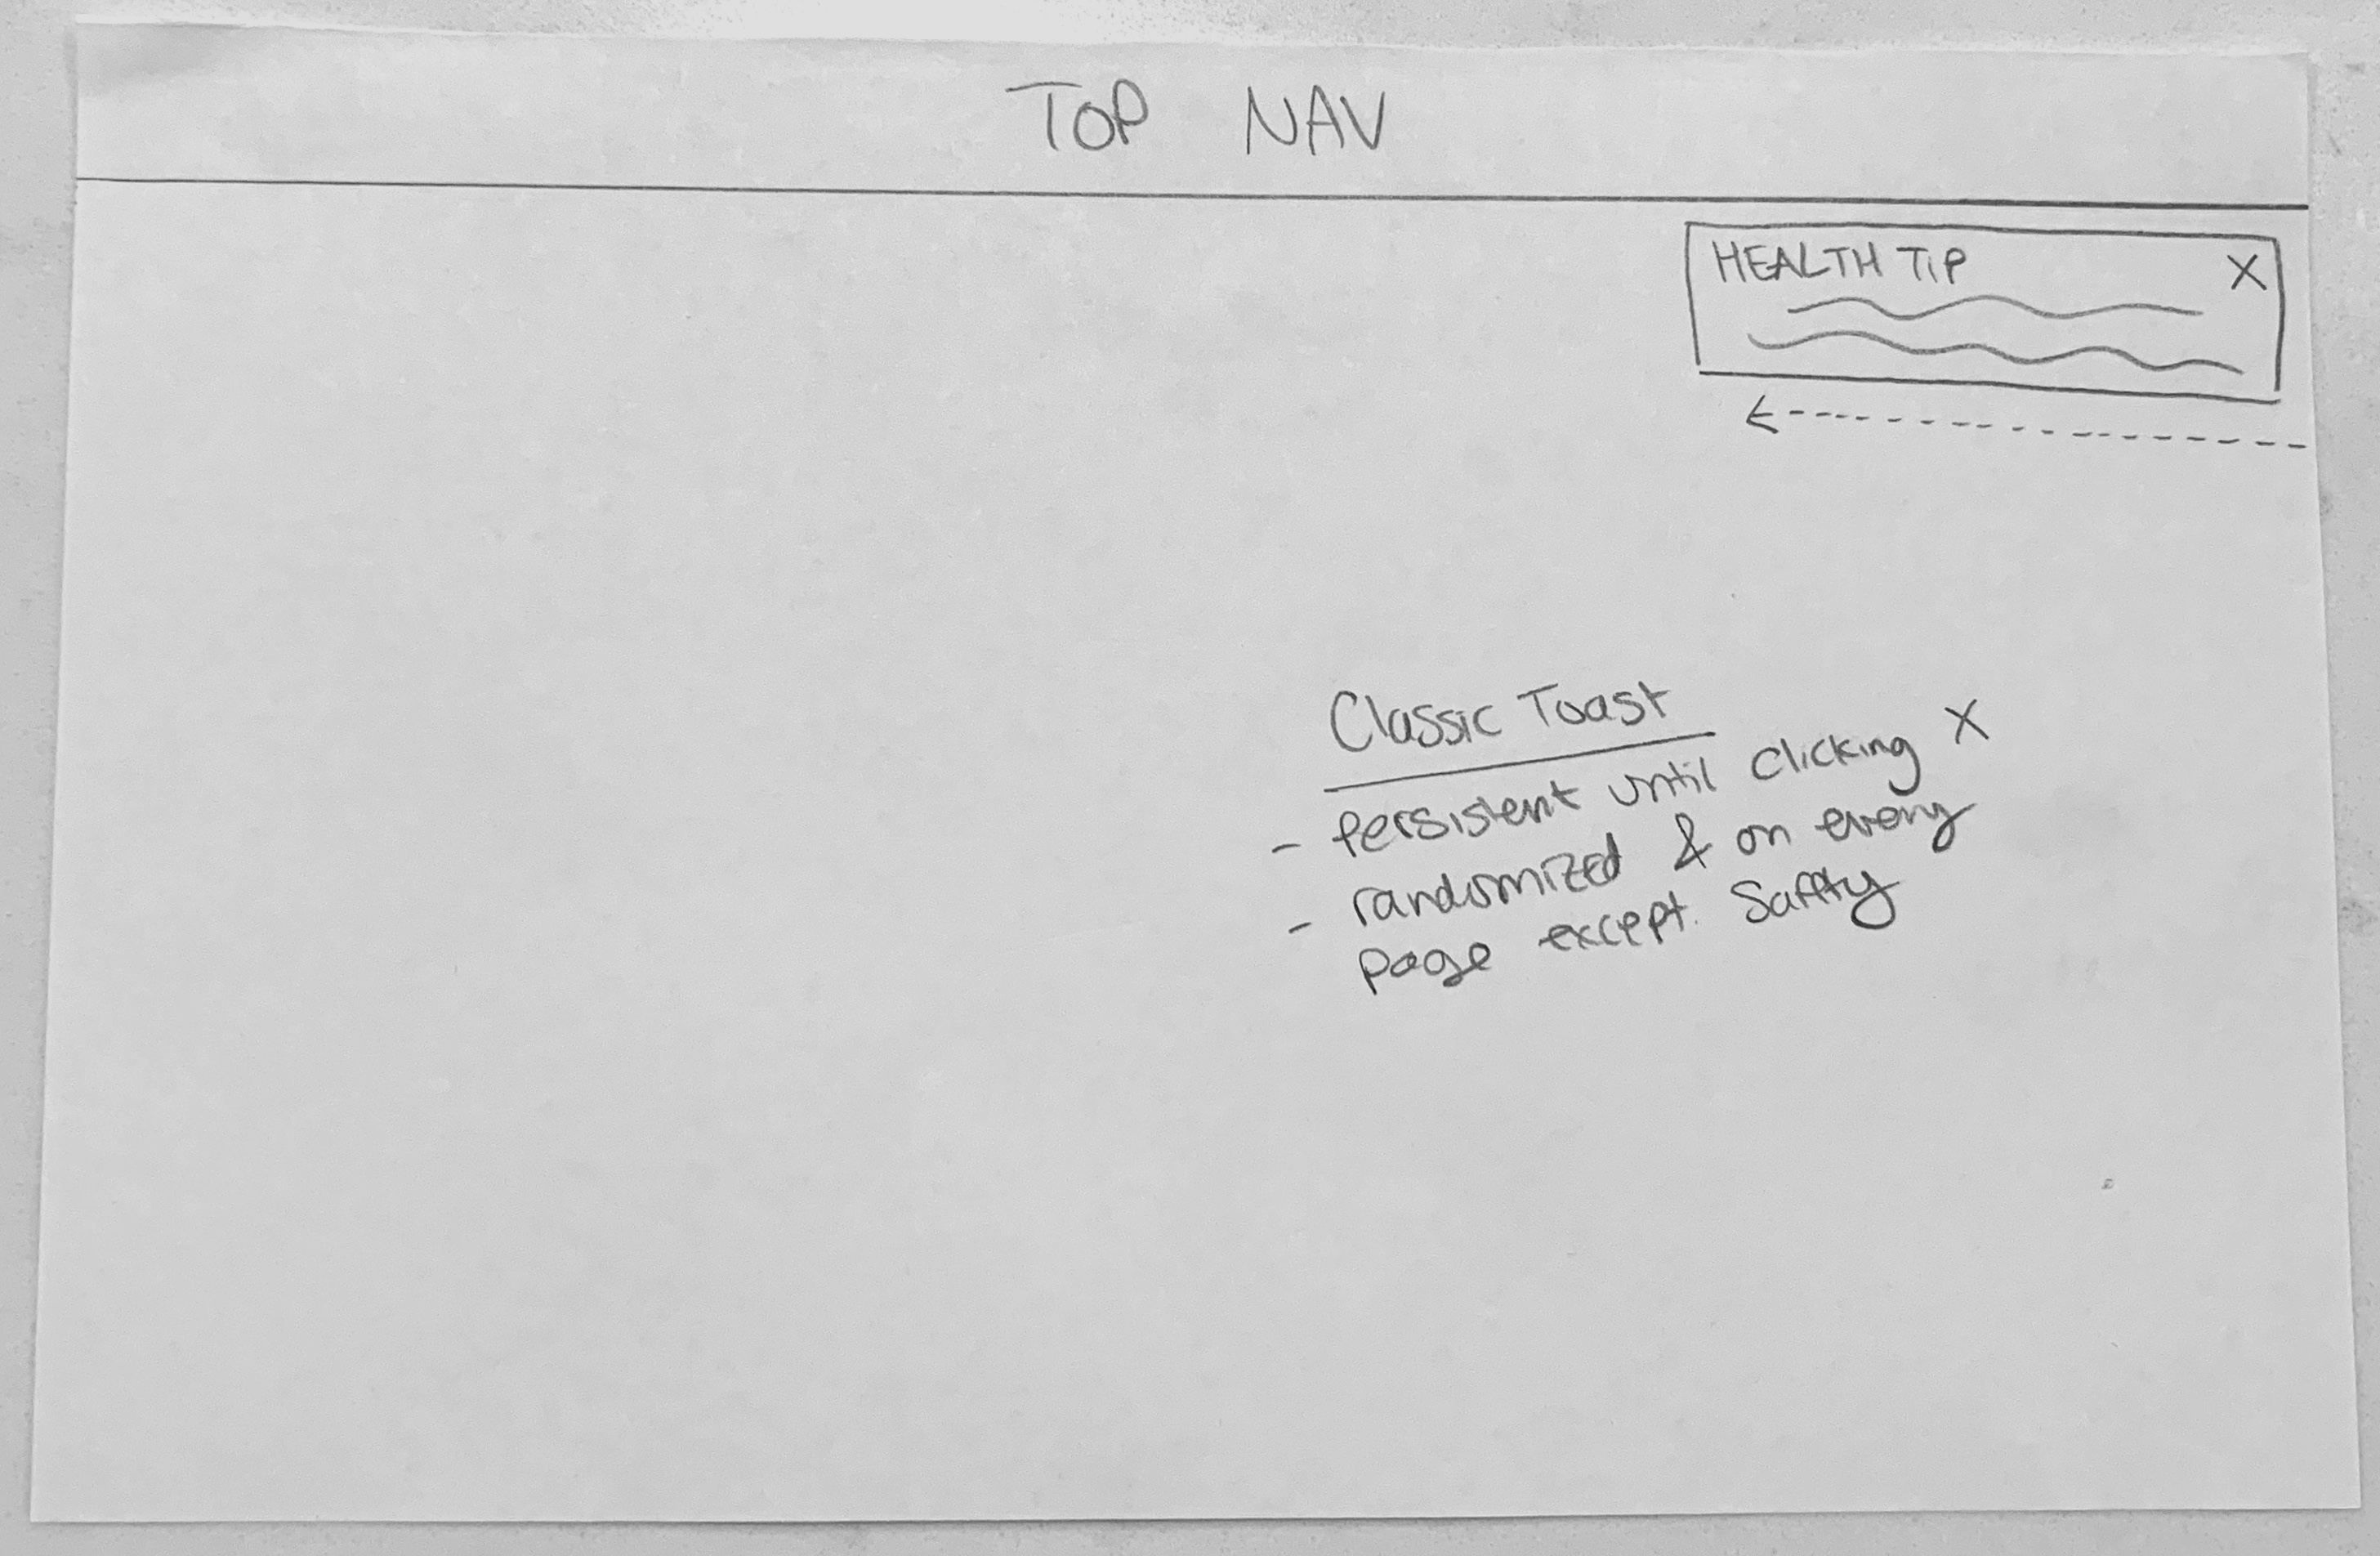 TOP NAV
HEALTH TIP X
Classic Toast
- Persistent until clicking X
- randomized & on every
page except. Saftty